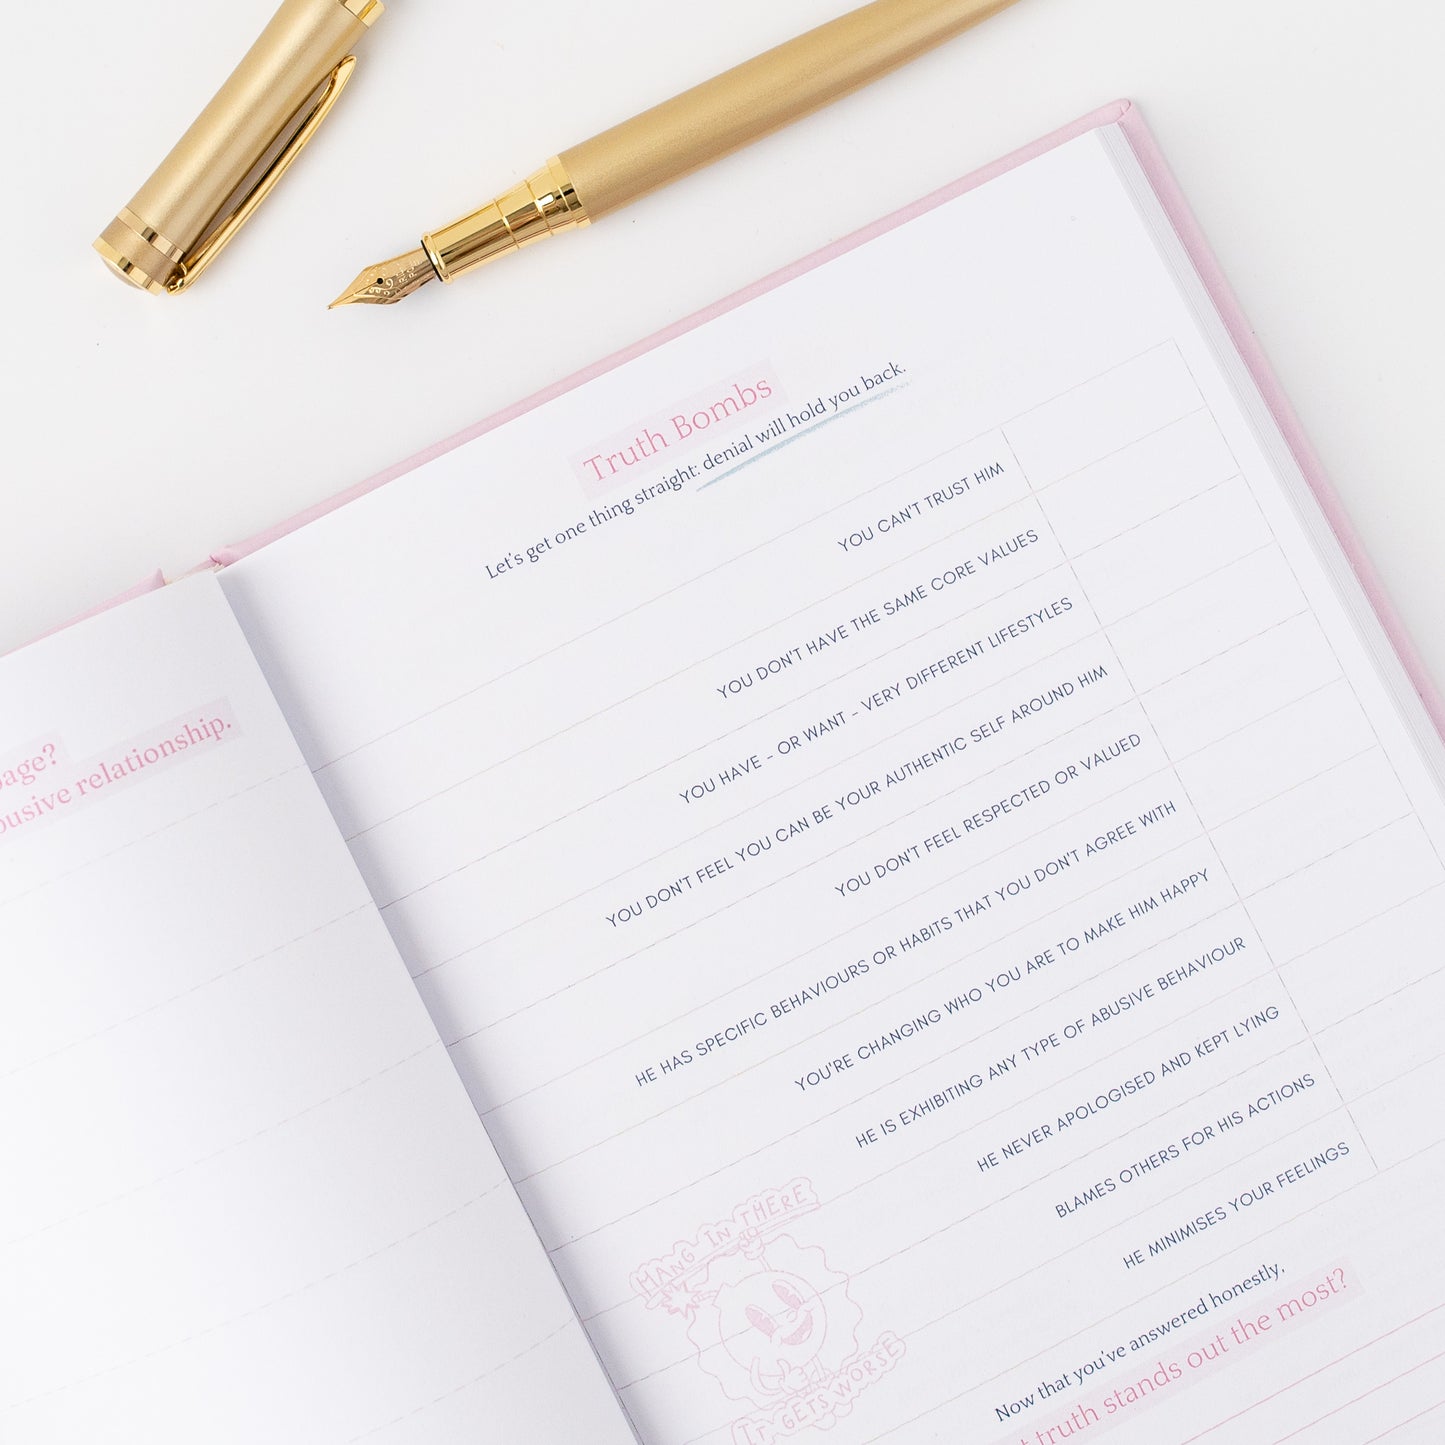 age?
usive relationship.
Truth Bombs
Let's get one thing straight: denial will hold you back.
YOU CAN'T TRUST HIM
YOU DON'T HAVE THE SAME CORE VALUES
YOU HAVE - OR WANT - VERY DIFFERENT LIFESTYLES
YOU DON'T FEEL YOU CAN BE YOUR AUTHENTIC SELF AROUND HIM
YOU DON'T FEEL RESPECTED OR VALUED
HE HAS SPECIFIC BEHAVIOURS OR HABITS THAT YOU DON'T AGREE WITH
YOU'RE CHANGING WHO YOU ARE TO MAKE HIM HAPPY
HE IS EXHIBITING ANY TYPE OF ABUSIVE BEHAVIOUR
HE NEVER APOLOGISED AND KEPT LYING
BLAMES OTHERS FOR HIS ACTIONS
HE MINIMISES YOUR FEELINGS
HANG IN THERE
IT GETS WORSE
Now that you've answered honestly,
t truth stands out the most?